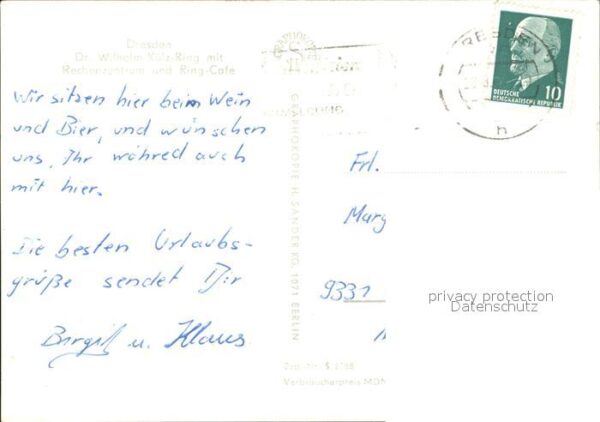 Dresden
Dr. Wilhelm-Külz-Ring mit
Rechenzentrum und Ring-Cafe
Wir sitzen hier beim Wein
und Bier, und wünschen
uns, Ihr währed auch
mit hier.
Die besten Urlaubs-
grüße sendet Dir
Birgit u. Klaus
GRAPHOKOPIE H. SANDER KG, 1071 BERLIN
Verbraucherpreis MDN
DRESDEN
h
10
DEUTSCHE
DEMOKRATISCHE REPUBLIK
Frl.
Marg
9331
privacy protection
Datenschutz